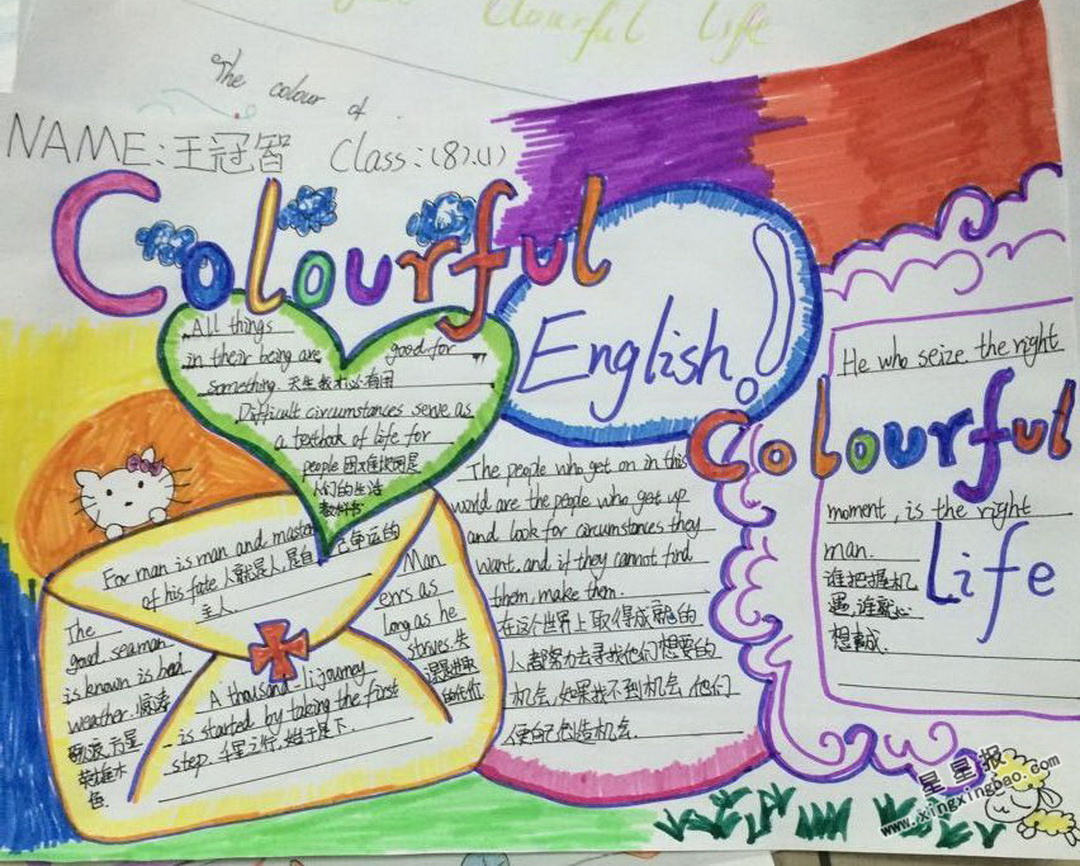 Colourful Life
The colour of
NAME: 王冠智 Class: (8).(1)
Colourful
English
All things
in their being are good for
something. 天生我才必有用
Difficult circumstances serve as
a textbook of life for
people 困难状况是
人们的生活
教科书
For man is man and master
of his fate 人就是人,是自己命运的
主人.
The
good seaman
is known is bad
weather. 惊涛
骇浪,方显
英雄本
色.
A thousand-li journey
is started by taking the first
step. 千里之行,始于足下.
Man
errs as
long as he
strives. 失
误是进取
的代价
The people who get on in this
world are the people who get up
and look for circumstances they
want, and if they cannot find
them, make them.
在这个世界上取得成就的
人都努力去寻找他们想要的
机会,如果找不到机会,他们
便自己创造机会.
He who seize the right
Colourful
moment, is the right
man.
谁把握机
遇,谁就心
想事成.
Life
星星报
www.xingxingbao.com